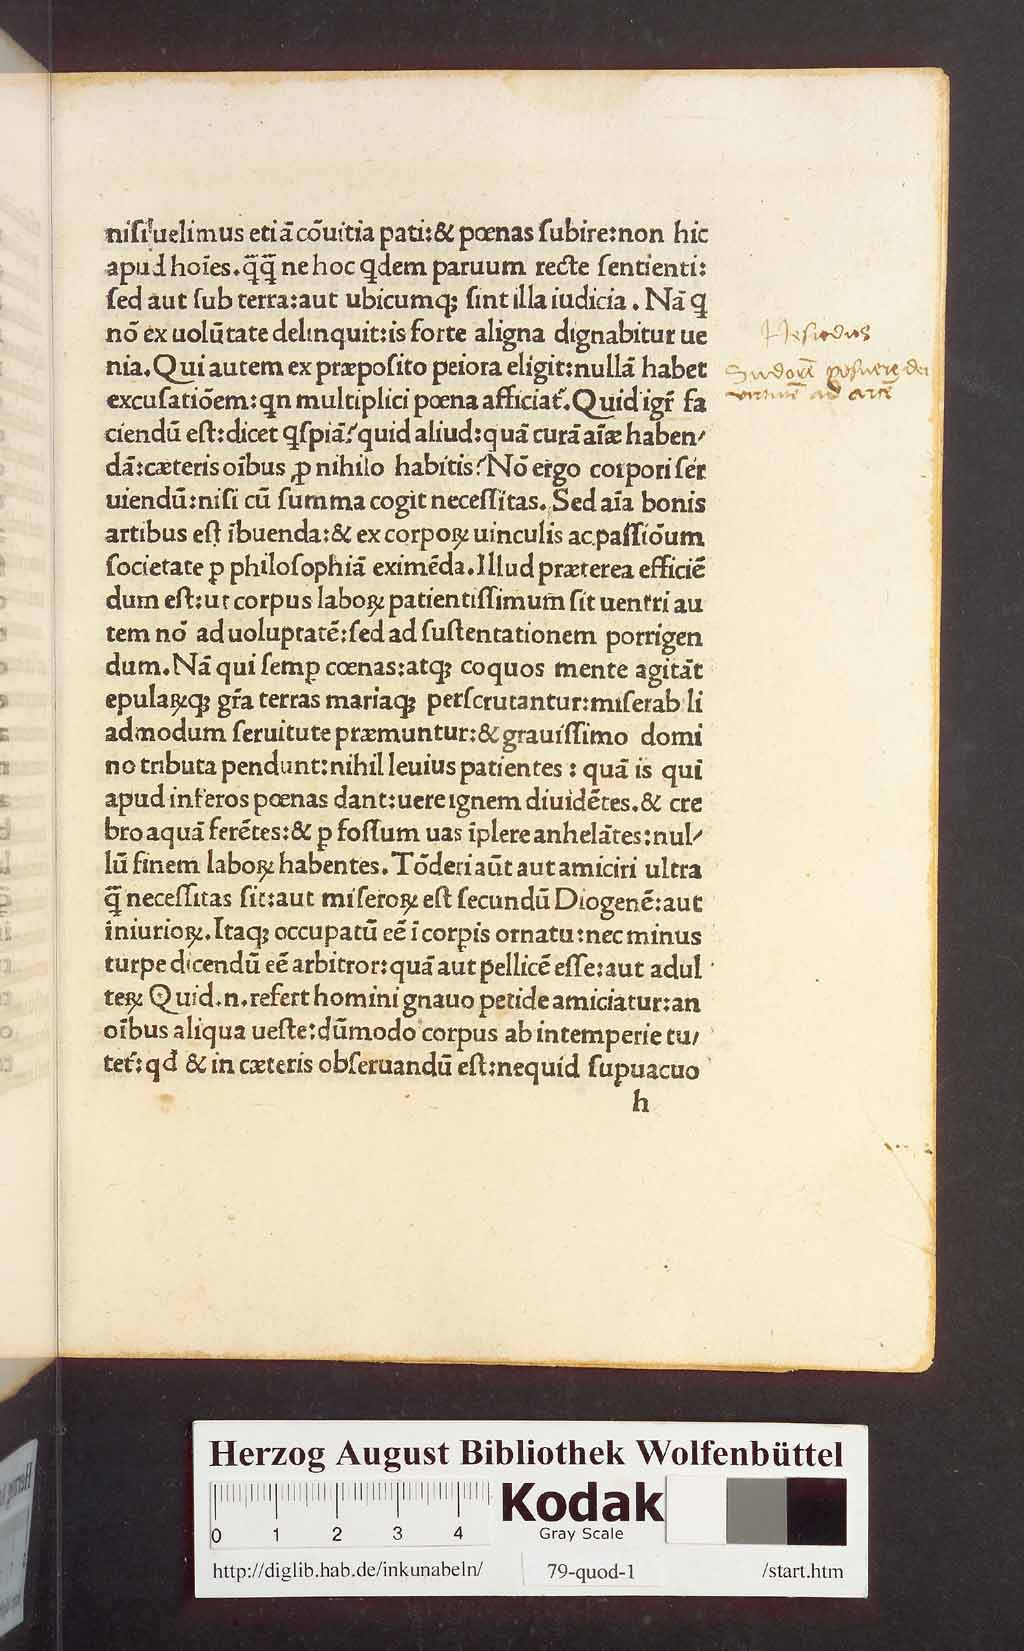 niſi uelimus etiā cōuitia pati:& pœnas ſubire:non hic
apud hoīes.q̄q̄ ne hoc qdem paruum recte ſentienti:
ſed aut ſub terra:aut ubicumqꝫ ſint illa iudicia. Nā q
nō ex uolūtate delinquit:is forte aligna dignabitur ue
nia. Qui autem ex præpoſito peiora eligit:nullā habet
excuſatiōem:qn multiplici pœna afficiat̄. Quid igr̄ fa
ciendū eſt:dicet qſpiā? quid aliud:quā curā aīæ haben/
dā:cæteris oībus ꝓ nihilo habitis? Nō ergo corpori ſer
uiendū:niſi cū ſumma cogit neceſſitas. Sed aīa bonis
artibus eſt ībuenda:& ex corpoꝝ uinculis ac paſſiōum
ſocietate ꝑ philoſophiā eximēda. Illud præterea efficiē
dum eſt:ut corpus laboꝝ patientiſſimum ſit uentri au
tem nō ad uoluptatē:ſed ad ſuſtentationem porrigen
dum. Nā qui ſemꝑ cœnas:atqꝫ coquos mente agitāt
epulaꝝqꝫ gr̄a terras mariaqꝫ perſcrutantur:miſerabili
admodum ſeruitute præmuntur:& grauiſſimo domi
no tributa pendunt:nihil leuius patientes : quā is qui
apud inferos pœnas dant:uere ignem diuidētes.& cre
bro aquā ferētes:& ꝑ foſſum uas īplere anhelātes:nul/
lū finem laboꝝ habentes. Tōderi aūt aut amiciri ultra
q̄ neceſſitas ſit:aut miſeroꝝ eſt ſecundū Diogenē:aut
iniurioꝝ. Itaqꝫ occupatū eē ī corꝑis ornatu:nec minus
turpe dicendū eē arbitror:quā aut pellicē eſſe:aut adul
teꝝ Quid.n.refert homini gnauo petide amiciatur:an
oībus aliqua ueſte:dūmodo corpus ab intemperie tu/
tet̄:qđ & in cæteris obſeruandū eſt:nequid ſuꝑuacuo
h
Hesiodus
Sudorē posuere dei
virtutē ad artē
Herzog August Bibliothek Wolfenbüttel
0 1 2 3 4
Kodak
Gray Scale
http://diglib.hab.de/inkunabeln/ 79-quod-1 /start.htm